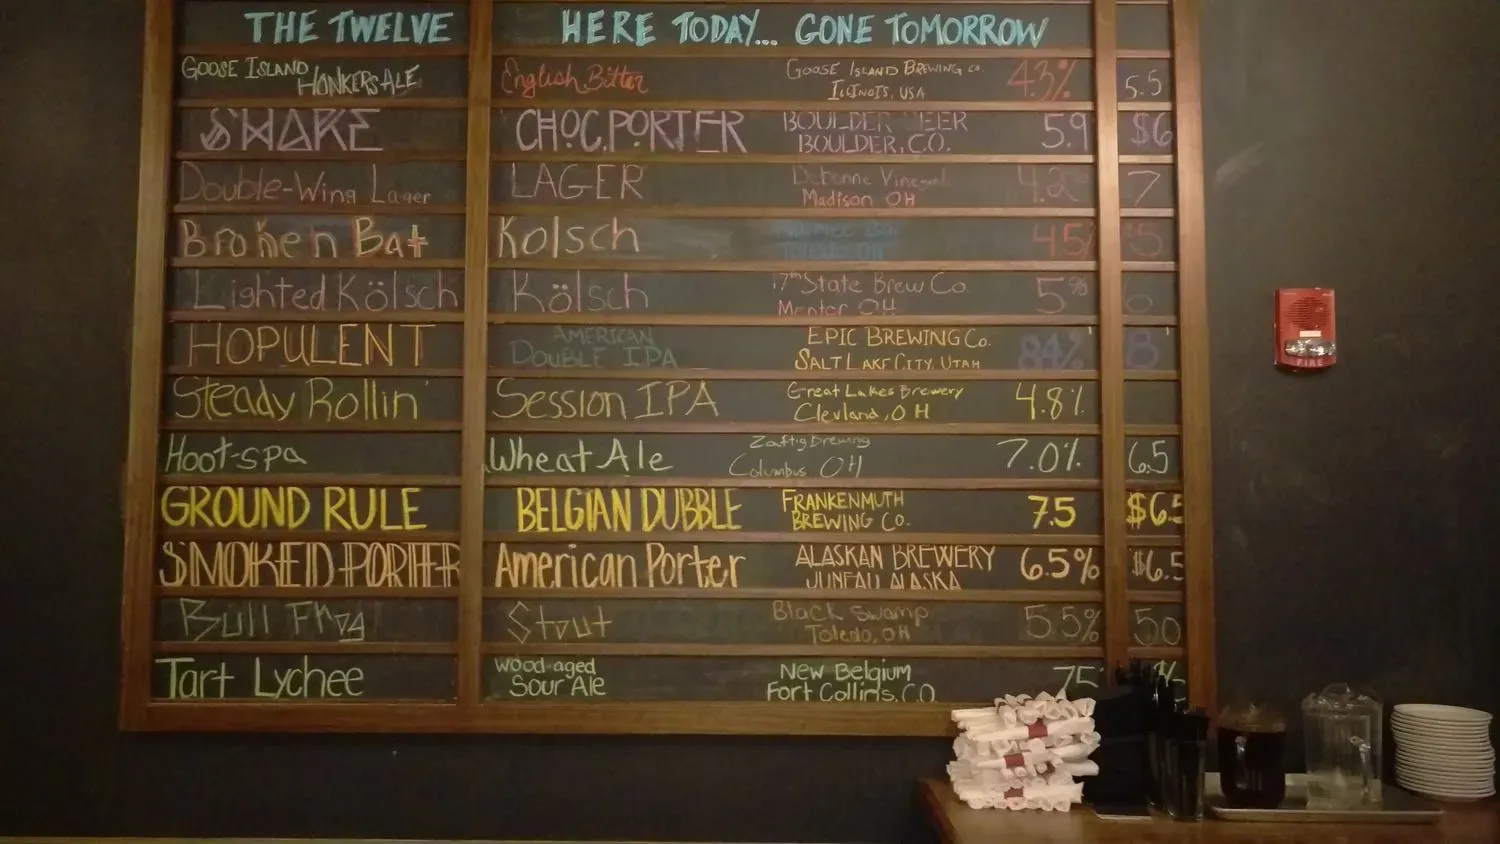 THE TWELVE HERE TODAY... GONE TOMORROW
GOOSE ISLAND HONKERS ALE English Bitter GOOSE ISLAND BREWING CO. 4.3% 5.5
ILLINOIS, USA
SHAKE CHOC. PORTER BOULDER BEER 5.9 $6
BOULDER, CO.
Double-Wing Lager LAGER Debonne Vineyard 4.2% 7
Madison OH
Broken Bat Kolsch 45% 5
Lighted Kölsch Kölsch 17th State Brew Co. 5% 6
Mentor OH
HOPULENT AMERICAN EPIC BREWING Co. 84% 8
DOUBLE IPA SALT LAKE CITY, UTAH
Steady Rollin' Session IPA Great Lakes Brewery 4.8%
Clevland, OH
Hoot-spa Wheat Ale Zaftig Brewing 7.0% 6.5
Columbus OH
GROUND RULE BELGIAN DUBBLE FRANKENMUTH 7.5 $6.5
BREWING CO.
SMOKED PORTER American Porter ALASKAN BREWERY 6.5% $6.5
JUNEAU ALASKA
Bull Frog Stout Black Swamp 5.5% 50
Toledo, OH
Tart Lychee Wood-aged New Belgium 75
Sour Ale Fort Collins, CO
FIRE